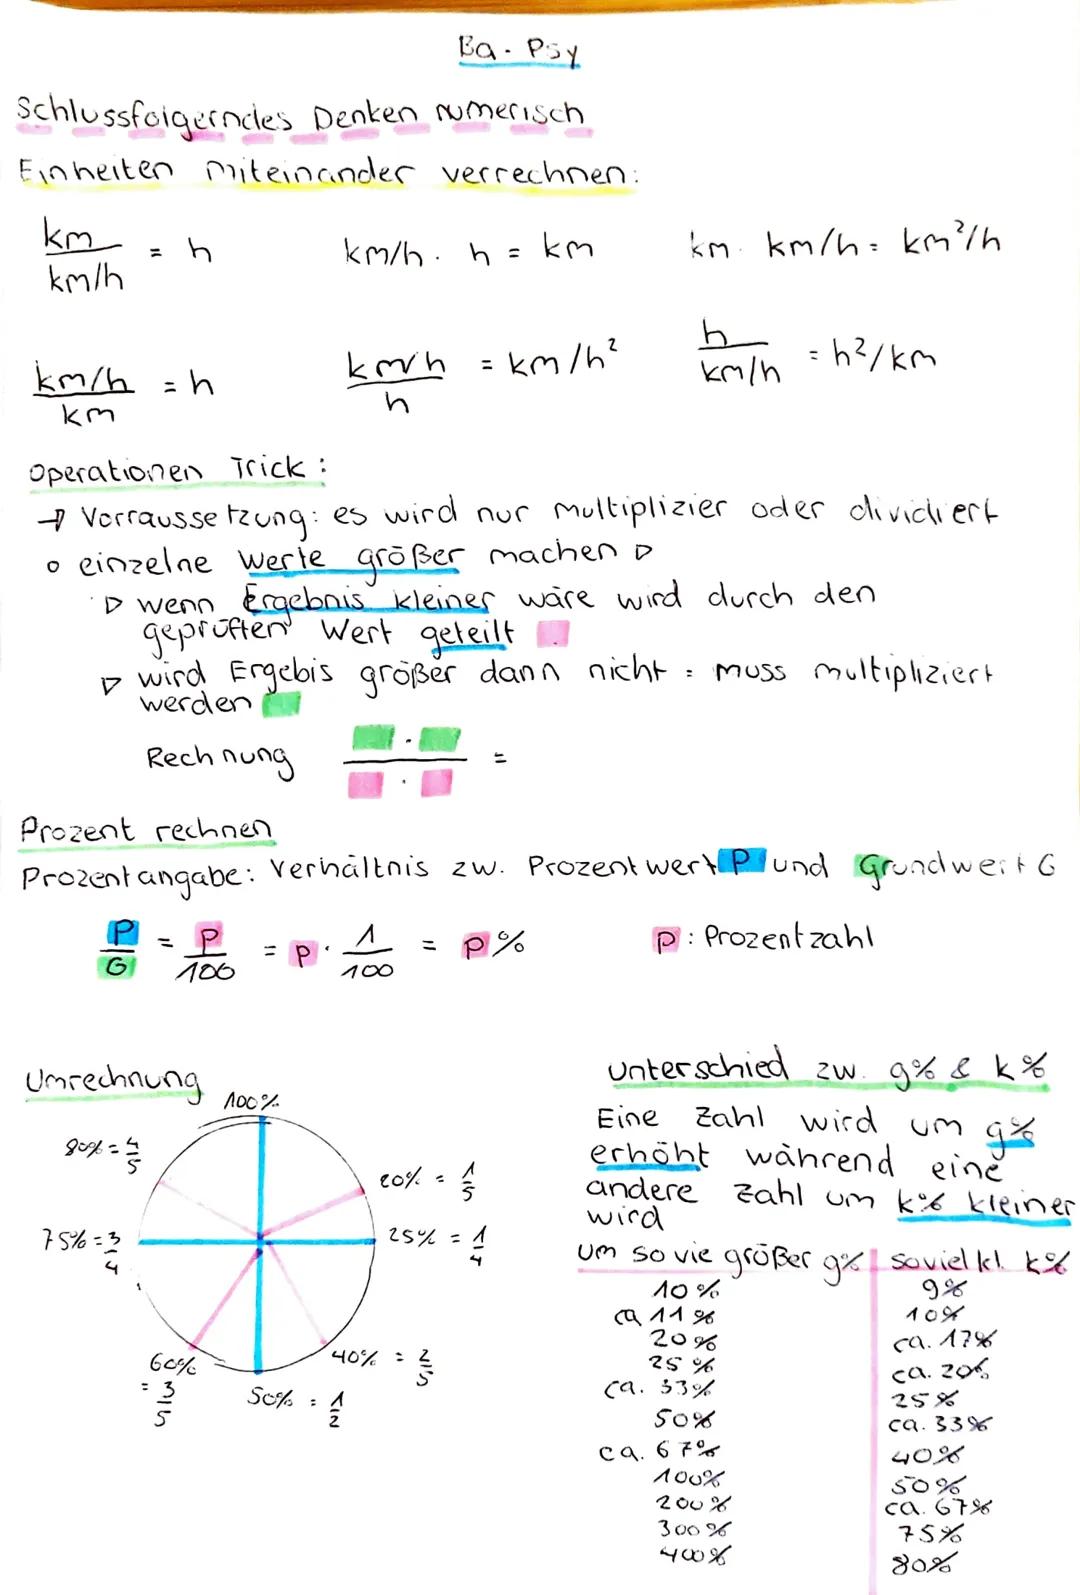 Ba. Psy
Schlussfolgerndes Denken numerisch
Einheiten miteinander verrechnen:
km / km/h = h
km/h · h = km
km · km/h = km²/h
km/h / km = h
km/h / h = km/h²
h / km/h = h²/km
Operationen Trick:
→ Vorraussetzung: es wird nur multiplizier oder dividiert
o einzelne Werte größer machen ▷
▷ wenn Ergebnis kleiner wäre wird durch den
geprüften Wert geteilt
▷ wird Ergebis größer dann nicht : muss multipliziert
werden
Rechnung · / · =
Prozent rechnen
Prozentangabe: Verhältnis zw. Prozentwert P und Grundwert G
P/G = p/100 = p · 1/100 = p%
p: Prozentzahl
Umrechnung
100%
80% = 4/5
20% = 1/5
75% = 3/4
25% = 1/4
60% = 3/5
40% = 2/5
50% = 1/2
Unterschied zw. g% & k%
Eine Zahl wird um g%
erhöht während eine
andere Zahl um k% kleiner
wird
um so vie größer g% | soviel kl. k%
10% 9%
ca 11% 10%
20% ca. 17%
25% ca. 20%
ca. 33% 25%
50% ca. 33%
ca. 67% 40%
100% 50%
200% ca. 67%
300% 75%
400% 80%